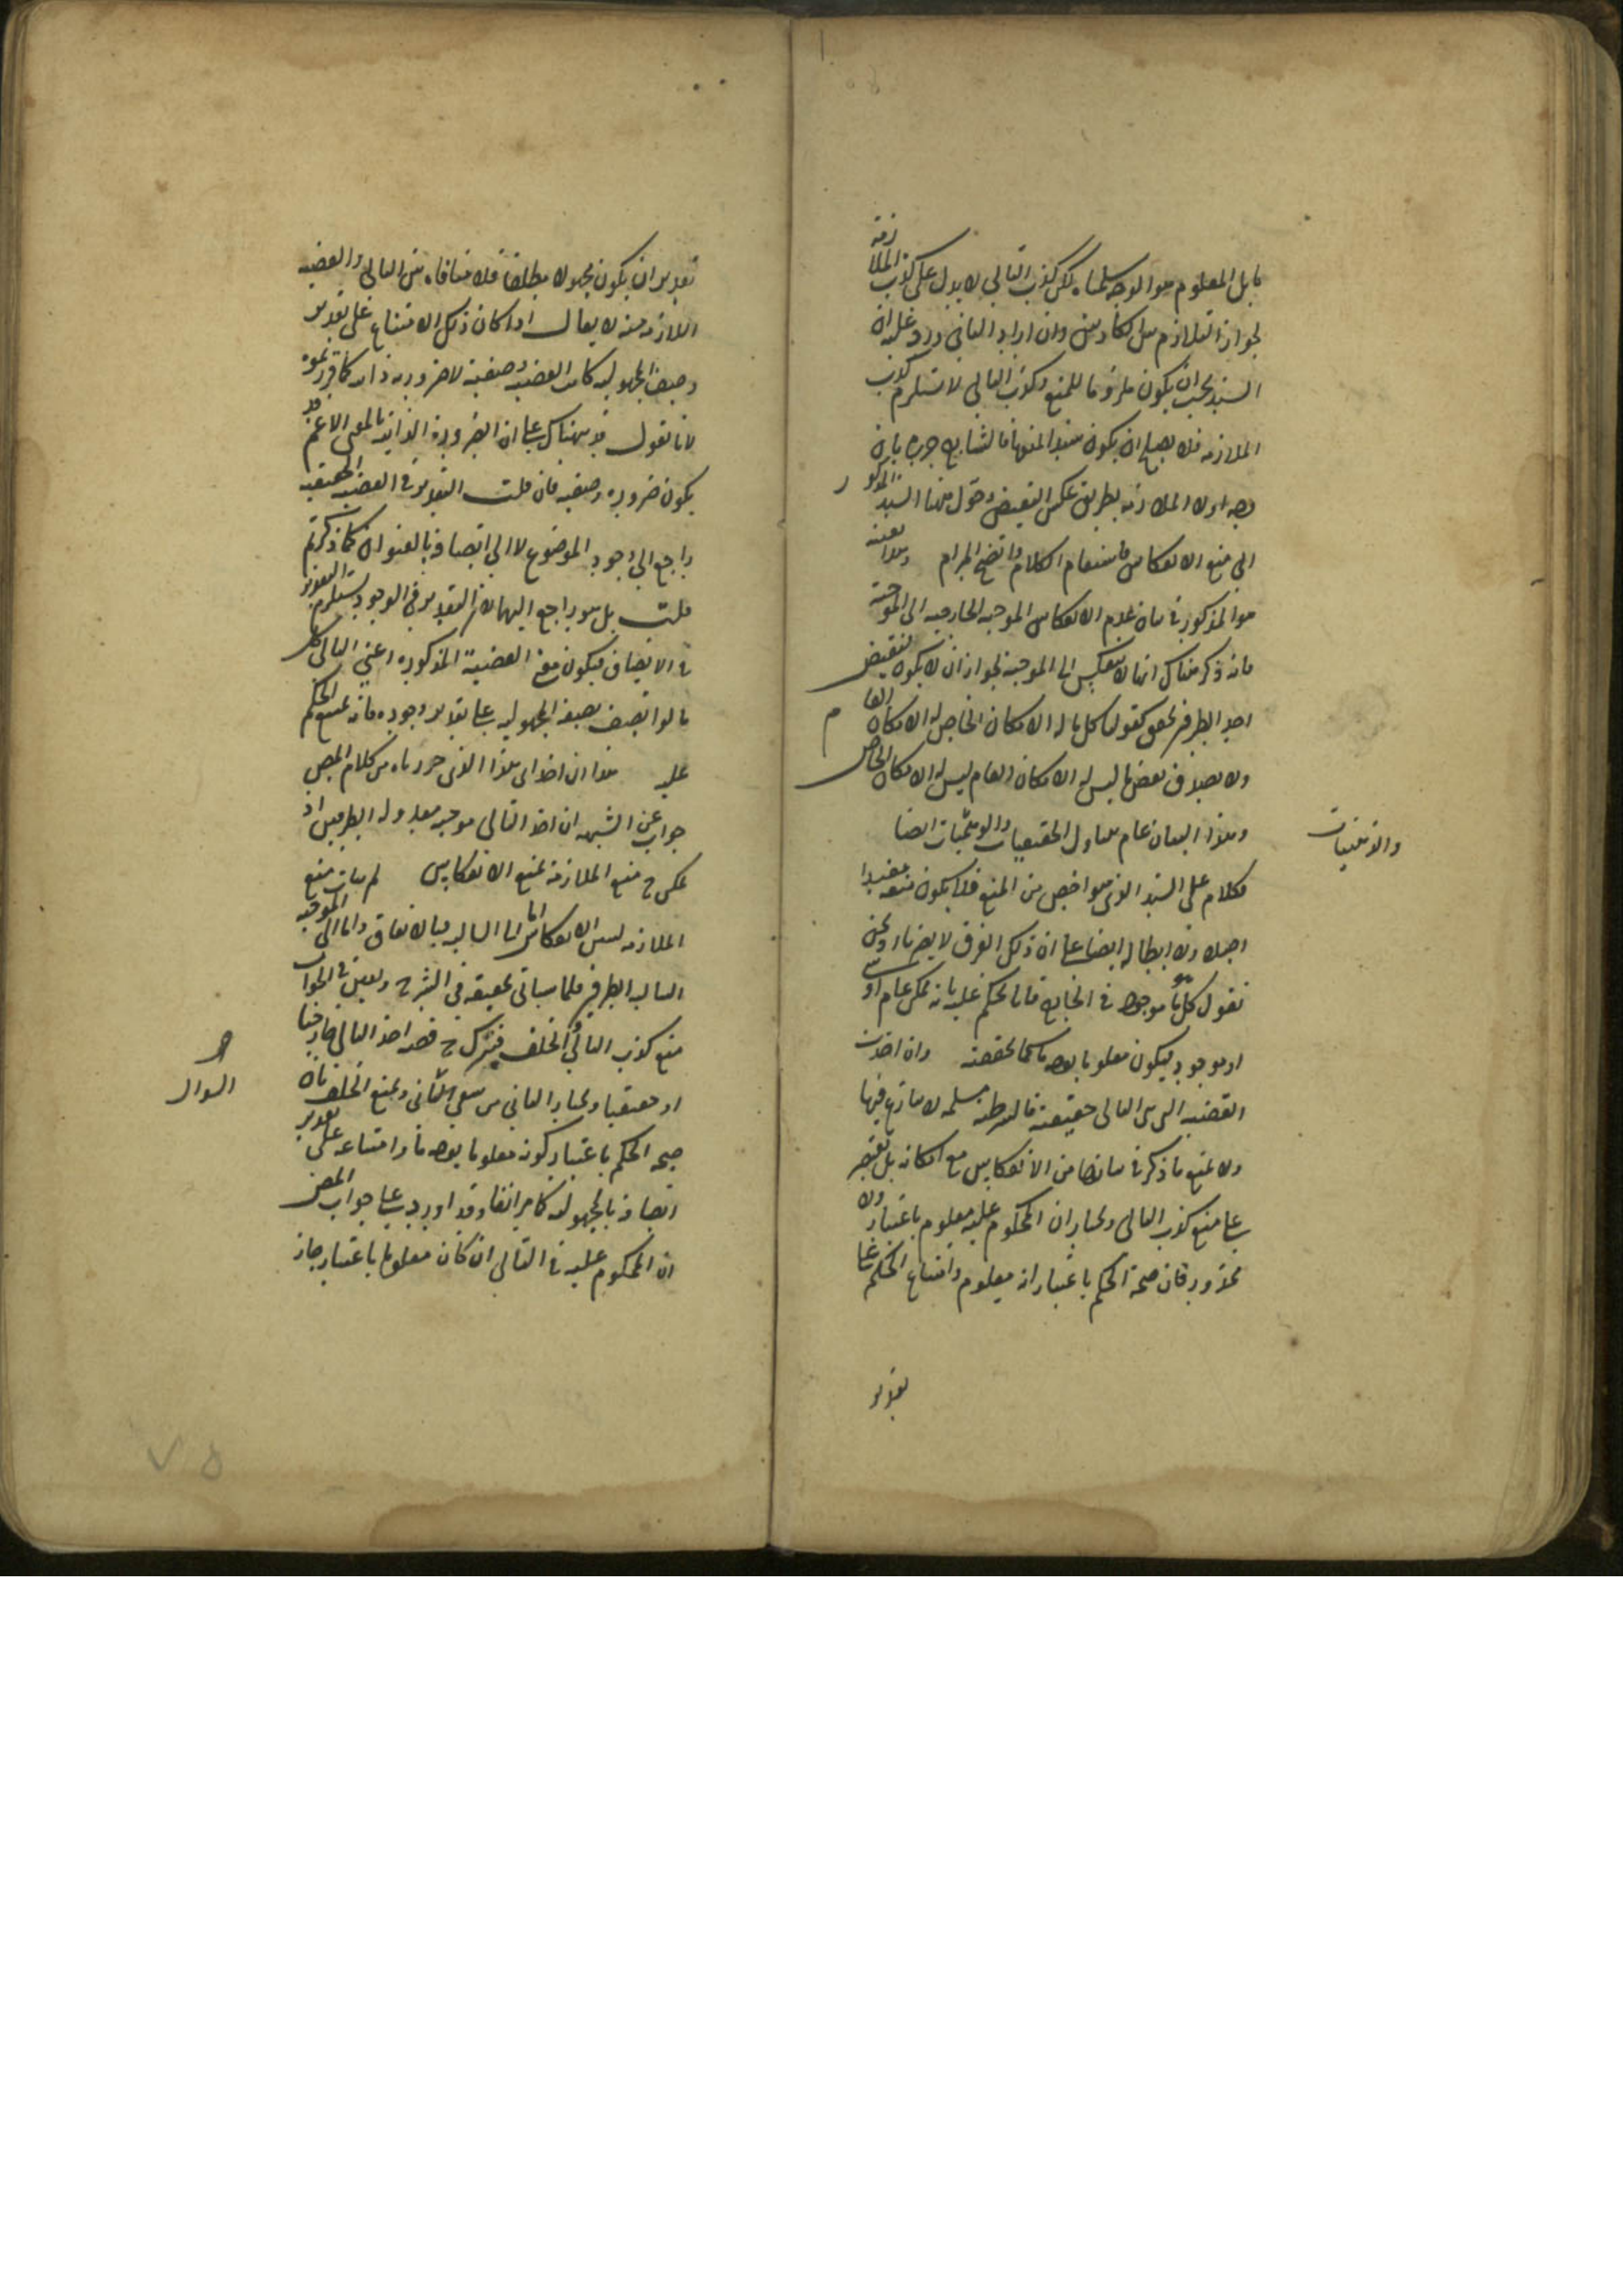 ما بل المعلوم هو الوجه سلمناه لكن كذب التالي لا يدل على كذب الملازمة
لجواز التلازم بين الكاذبين وان اراد الثاني ورد عليه ان
السند يجب ان يكون ملزوما للمنع وكذب التالي لا يستلزم كذب
الملازمة فلا يصلح ان يكون سندا لمنعها فالشارح صرح بان
وجه اولا الملازمة بطريق عكس النقيض وحول هنا السند المذكور
الى منع الانعكاس فاستقام الكلام واتضح المرام وهذا بعينه
هو المذكور في بيان عدم الانعكاس الموجبة الخارجية الى الموجبة
فانه ذكر هناك انها لا تنعكس الى الموجبة لجواز ان لا يكون لنقيض
احد الطرفين تحقق كقولنا كل ما له الامكان الخاص له الامكان العام
ولا يصدق بعض ما ليس له الامكان العام ليس له الامكان الخاص
وهذا البيان عام يتناول الحقيقيات والوهميات ايضا
والذهنيات
فكلام على السند الذي هو اخص من المنع فلا يكون منعه مفيدا
اصلا ولا ابطاله ايضا على ان ذلك الفرق لا يضرنا ونحن
نقول كل ما هو موجود في الخارج فانا نحكم عليه بانه ممكن عام او شيء
او موجود فيكون معلوما بوجه ما كما تحققته وان اخذت
القضية التي هي التالي حقيقية فالشرطية مسلمة لا ينازع فيها
ولا يمنع ما ذكر في بيانها من الانعكاس مع امكانه بل نقتصر
على منع كذب التالي ونختار ان المحكوم عليه معلوم باعتبار ولا
محذور فان صحة الحكم باعتبار انه معلوم وامتناع الحكم على
تقدير
تقدير ان يكون مجهولا مطلقا فلا منافاة بين التالي والقضية
اللازمة منه لا يقال اذا كان ذلك الامتناع على تقدير
وصف المجهولية كانت القضية وصفية لا ضرورية ذاتية كما قررتموه
لانا نقول قد نبهناك على ان الضرورة الذاتية بالمعنى الاعم قد
يكون ضرورة وصفية فان قلت التقدير في القضية الحقيقية
راجع الى وجود الموضوع لا الى اتصافه بالعنوان كما ذكرتم
قلت بل هو راجع اليهما لان التقدير في الوجود يستلزم التقدير
في الاتصاف فيكون معنى القضية المذكورة اعني التالي كل
ما لو اتصف بصفة المجهولية على تقدير وجوده فانه يمتنع الحكم
عليه هذا ان اخذ اى هذا الذي حررناه من كلام المص
جواب عن الشبهة ان اخذ التالي موجبة معدولة الطرفين اذ
يمكن ح منع الملازمة بمنع الانعكاس لم يتأت منع
الملازمة لمنع الانعكاس اما الى السالبة فبالاتفاق واما الى الموجبة
السالبة الطرفين فلما سيأتي تحقيقه في الشرح وتعين في الجواب
منع كذب التالي والخلف فيترك ح قصد اخذ التالي خارجيا
السوال
او حقيقيا ونختار الثاني من شقي الثاني ونمنع الخلف بناء
صحة الحكم باعتبار كونه معلوما بوجه ما وامتناعه على تقدير
اتصافه بالمجهولية كما مر انفا وقد اورد على جواب المص
ان المحكوم عليه في التالي ان كان معلوما باعتبار جاز